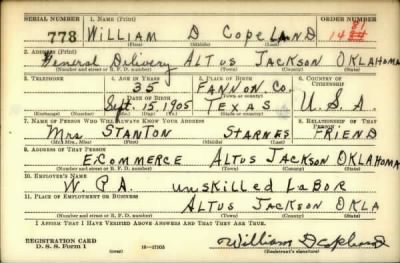 SERIAL NUMBER 1. NAME (Print) ORDER NUMBER
778 WILLIAM D COPELAND
(First) (Middle) (Last)
2. ADDRESS (Print)
General Delivery ALTUS JACKSON OKLAHOMA
(Number and street or R. F. D. number) (Town) (County) (State)
3. TELEPHONE 4. AGE IN YEARS 5. PLACE OF BIRTH 6. COUNTRY OF CITIZENSHIP
35 FANNON CO.
DATE OF BIRTH (Town or county)
Sept. 15, 1905 TEXAS U.S.A.
(Exchange) (Number) (Mo.) (Day) (Yr.) (State or country)
7. NAME OF PERSON WHO WILL ALWAYS KNOW YOUR ADDRESS 8. RELATIONSHIP OF THAT PERSON
Mrs STANTON STARNES FRIEND
(Mr., Mrs., Miss) (First) (Middle) (Last)
9. ADDRESS OF THAT PERSON
E. COMMERCE ALTUS JACKSON OKLAHOMA
(Number and street or R. F. D. number) (Town) (County) (State)
10. EMPLOYER'S NAME
W. P. A. unSKILLED LABOR
11. PLACE OF EMPLOYMENT OR BUSINESS
ALTUS JACKSON OKLA
(Number and street or R. F. D. number) (Town) (County) (State)
I AFFIRM THAT I HAVE VERIFIED ABOVE ANSWERS AND THAT THEY ARE TRUE.
REGISTRATION CARD
D. S. S. Form 1 (over) 16—17105 William D Copeland
(Registrant's signature)